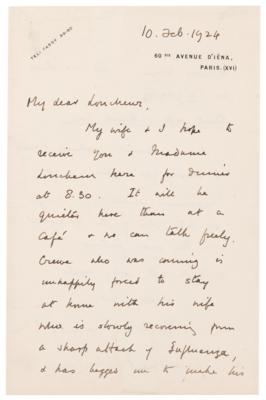 10. Feb. 1924
TÉL: PASSY
60 BIS AVENUE D'IÉNA,
PARIS. (XVI)
My dear Loucheur,
My wife & I hope to
receive you & Madame
Loucheur here for dinner
at 8.30. It will be
quieter here than at a
Café & we can talk freely.
Crewe who was coming is
unhappily forced to stay
at home with his wife
who is slowly recovering from
a sharp attack of Influenza,
& has begged me to make his